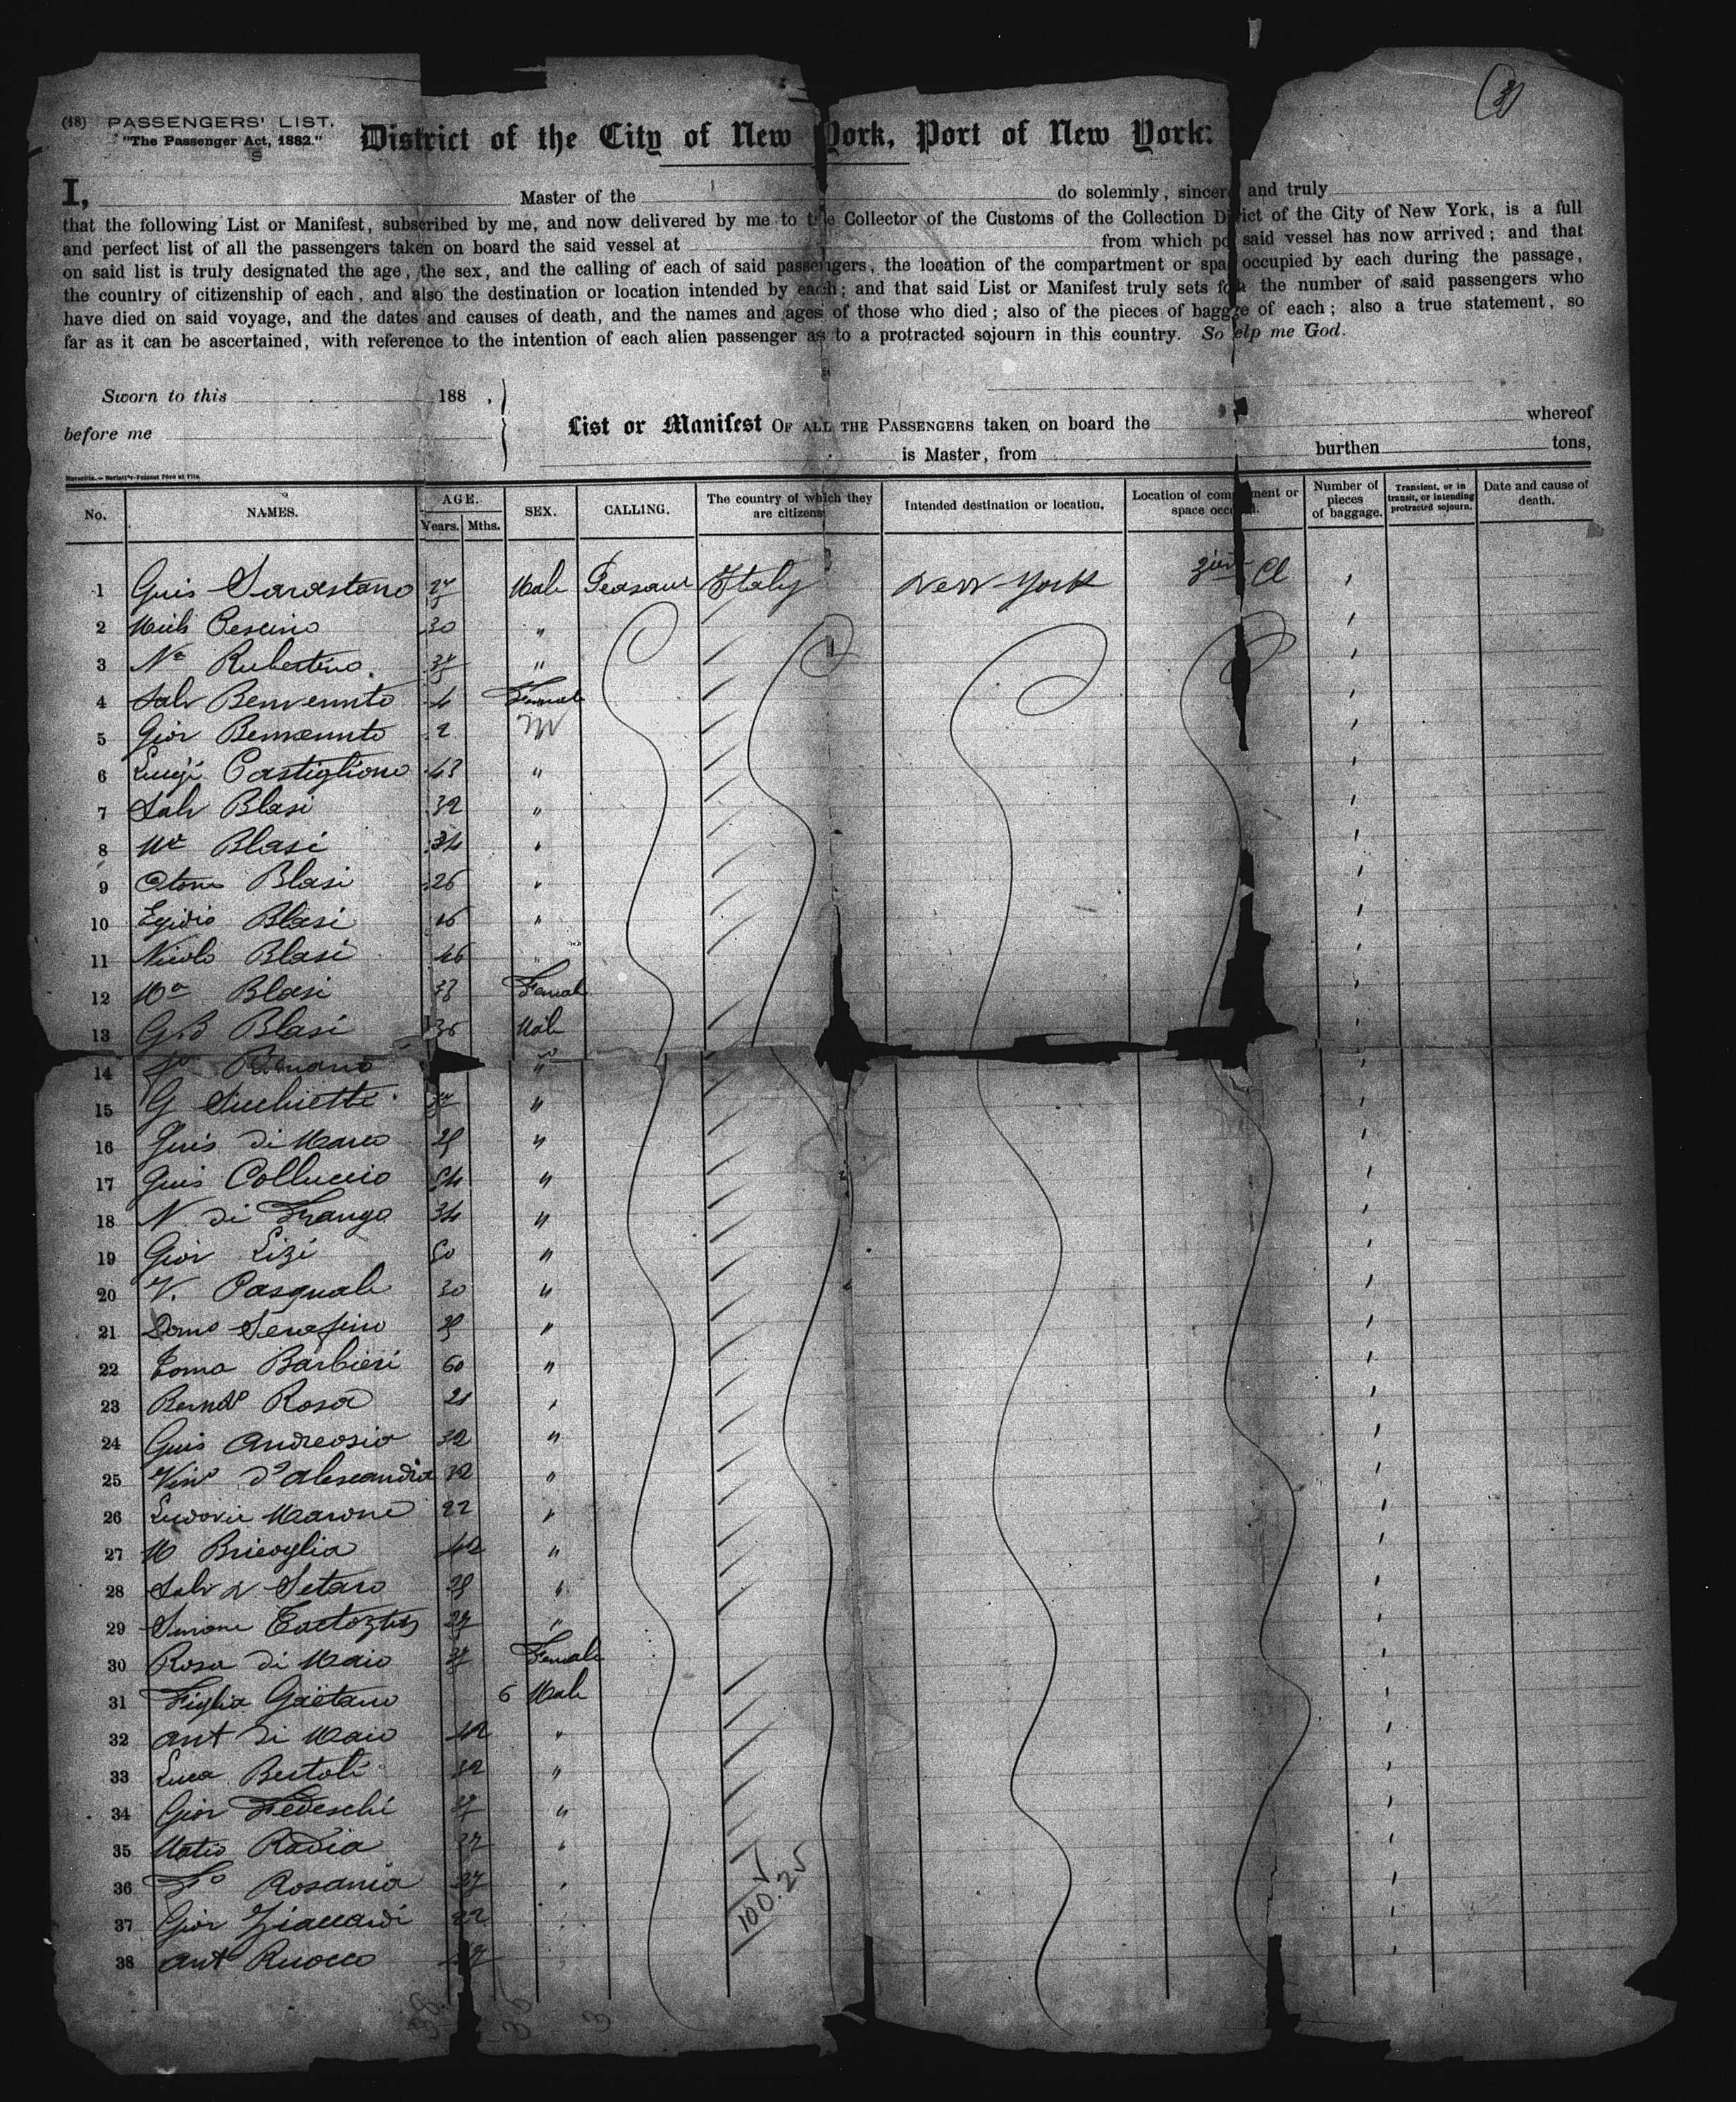 (3)
(18) PASSENGERS' LIST.
"The Passenger Act, 1882."
District of the City of New York, Port of New York:
I, Master of the do solemnly, sincere and truly
that the following List or Manifest, subscribed by me, and now delivered by me to the Collector of the Customs of the Collection District of the City of New York, is a full
and perfect list of all the passengers taken on board the said vessel at from which po said vessel has now arrived; and that
on said list is truly designated the age, the sex, and the calling of each of said passengers, the location of the compartment or spa occupied by each during the passage,
the country of citizenship of each, and also the destination or location intended by each; and that said List or Manifest truly sets foth the number of said passengers who
have died on said voyage, and the dates and causes of death, and the names and ages of those who died; also of the pieces of baggage of each; also a true statement, so
far as it can be ascertained, with reference to the intention of each alien passenger as to a protracted sojourn in this country. So help me God.
Sworn to this 188 ,
before me
List or Manifest OF ALL THE PASSENGERS taken on board the whereof
is Master, from burthen tons,
No. NAMES. AGE. Years. Mths. SEX. CALLING. The country of which they are citizens Intended destination or location, Location of compartment or space occupied. Number of pieces of baggage. Transient, or in transit, or intending protracted sojourn. Date and cause of death.
1 Guis Male Peasant Italy New York Cl
2 Mich 30 "
3 Na Rubertino "
4 Salv Benvenuto 4 Female
5 Gior Benvenuto 2 M
6 Luigi Castiglione 43 "
7 Salv Blasi 32 "
8 Blasi 34 "
9 Blasi 26 "
10 Egidio Blasi 16 "
11 Nicolo Blasi 46 "
12 Ma Blasi 33 Female
13 G.B Blasi 36 Male
14 "
15 G "
16 Guis di Marco "
17 Guis Colluccio 54 "
18 N. di 34 "
19 Gior Lizi 50 "
20 V. Pasquale 30 "
21 Domo Serafino "
22 Toma Barbieri 60 "
23 Rosa 21 "
24 Guis Andreosio 32 "
25 d'Alescandria 32 "
26 Marone 22 "
27 M 42 "
28 Salv Setaro "
29 Simone "
30 Rosa di Maio Female
31 Figlia Gaetano 6 Male
32 Ant di Maio 42 "
33 Luca Bertoli 32 "
34 Gior Tedeschi "
35 Radia "
36 Fo Rosania "
37 Gior 22 "
38 Ant Ruocco
100.25
38 36 3